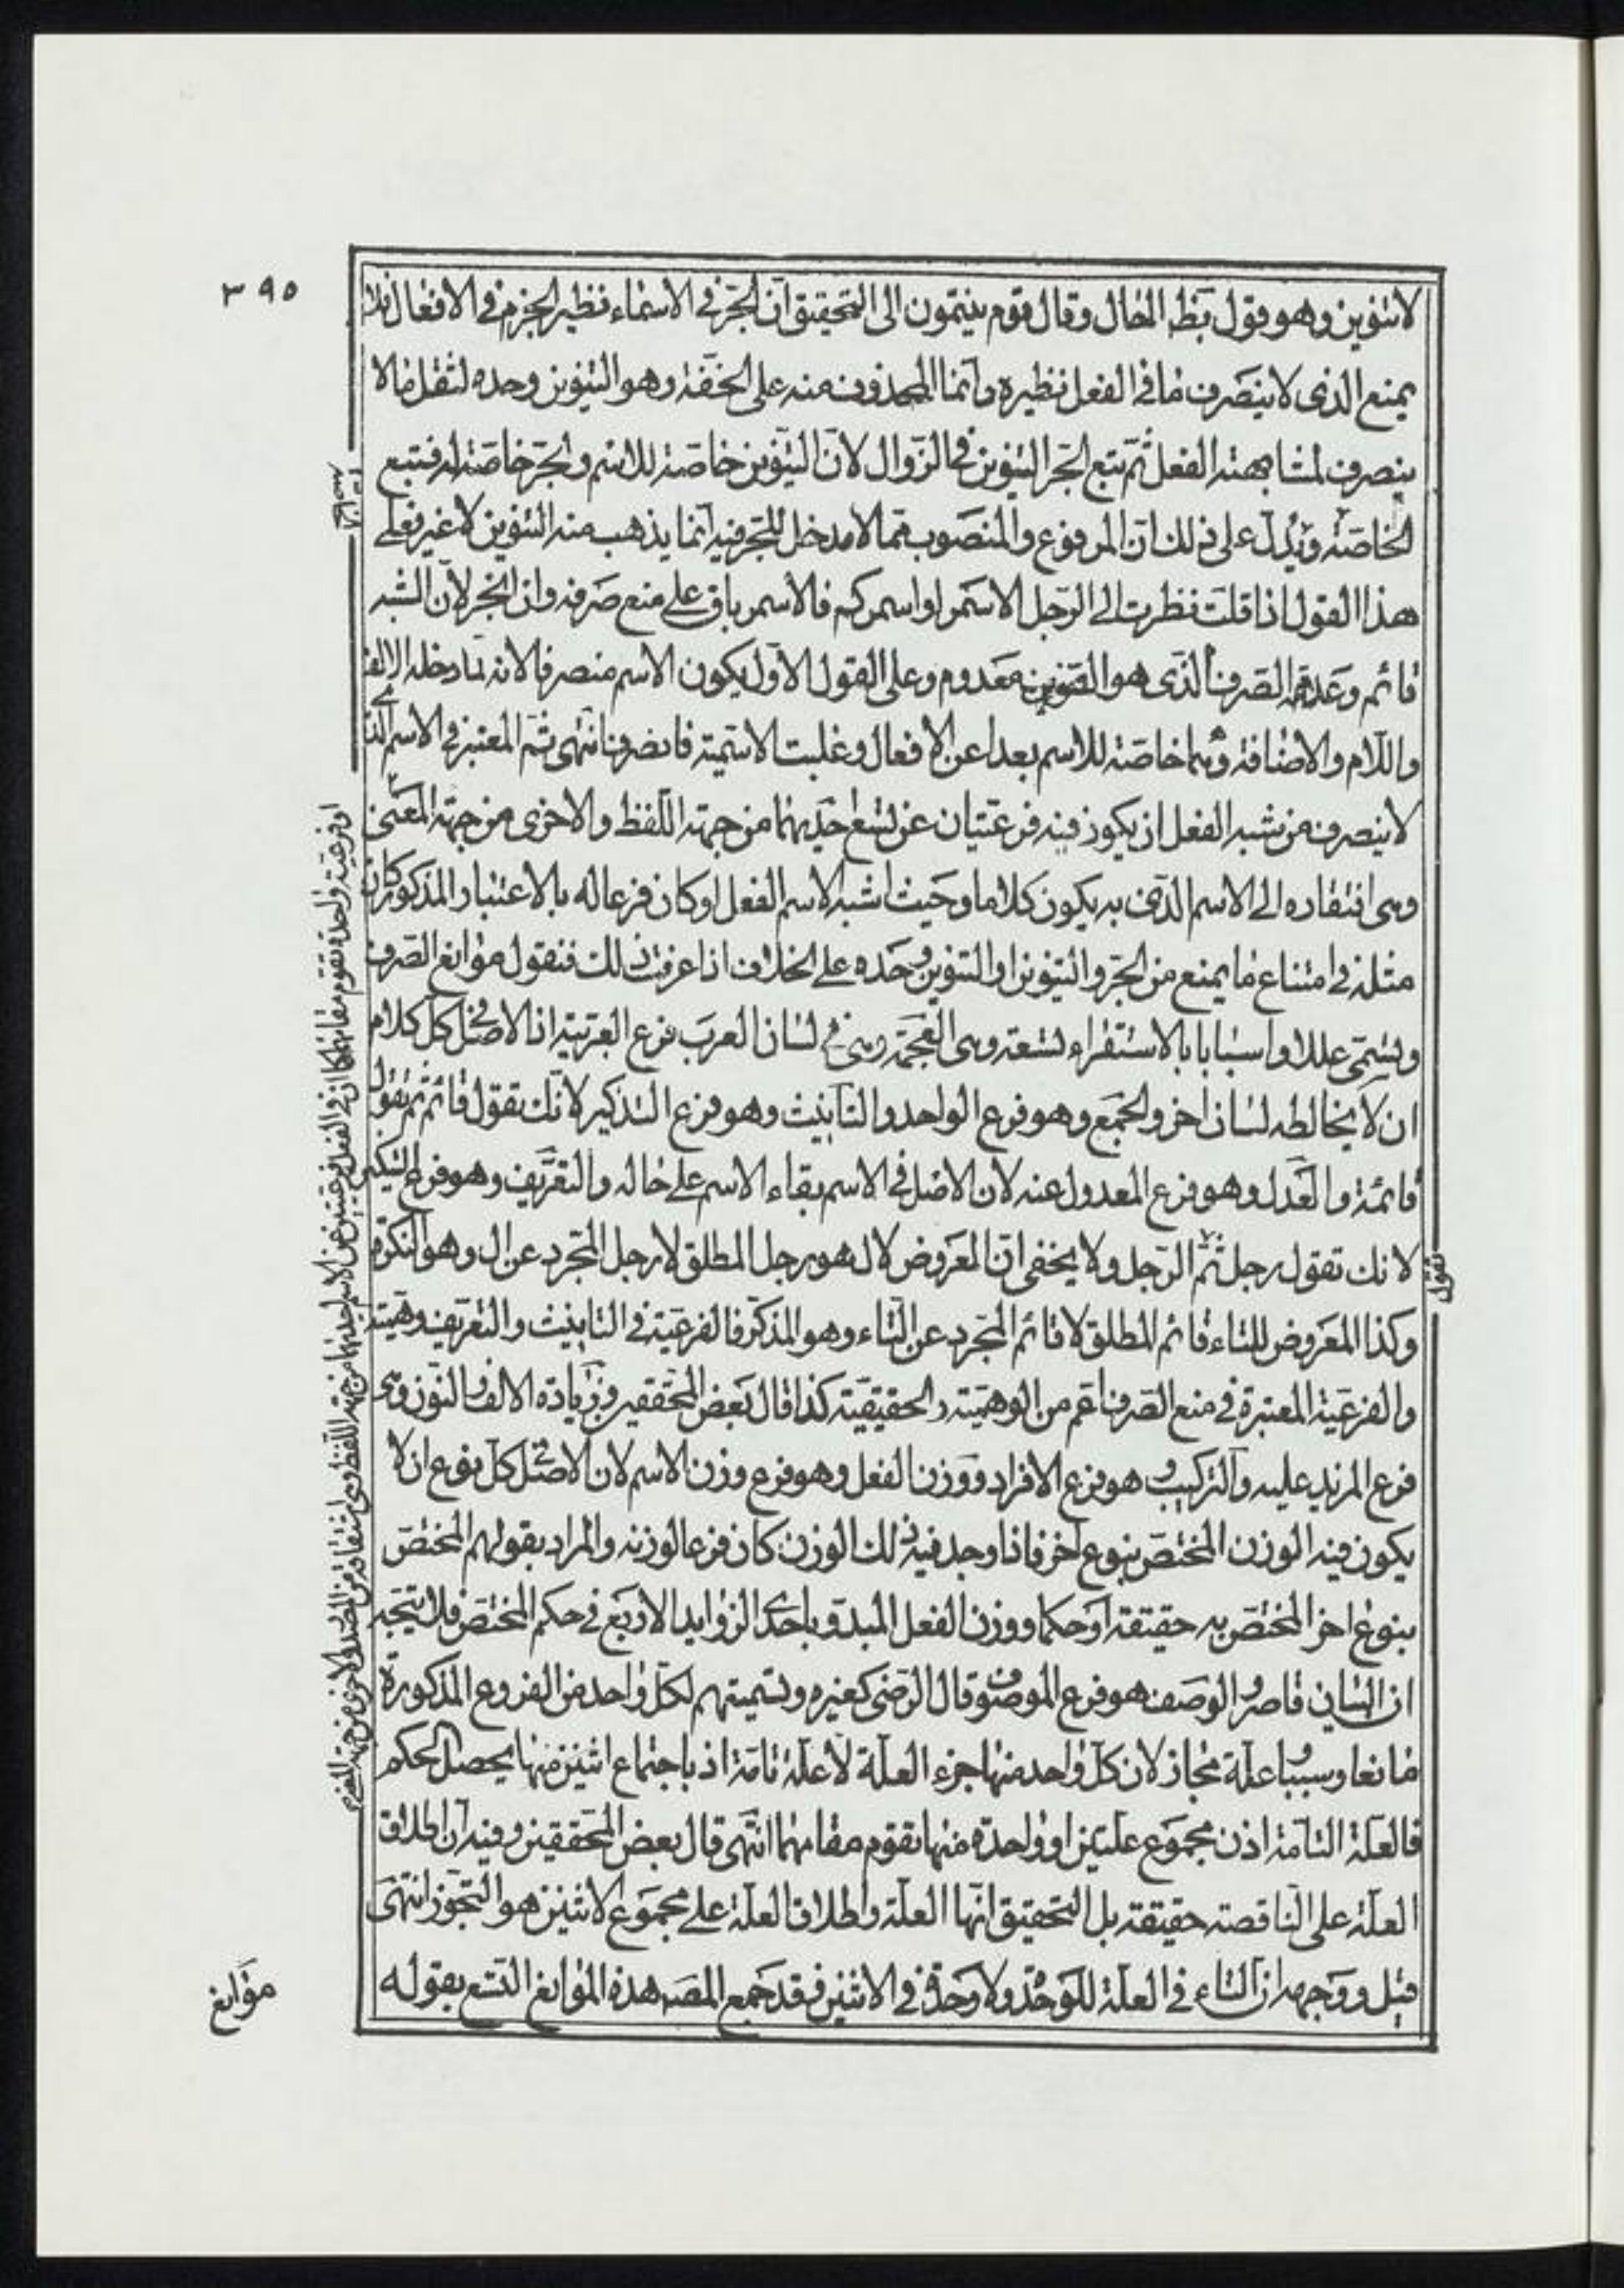 ٣٩٥
لا تنوين وهو قول بظ المحال وقال قوم ينتمون الى التحقيق ان الجر في الاسماء نظير الجزم في الافعال فلا
يمنع الذى لا ينصرف ما في الفعل نظيره وانما المحذوف منه على الخفة وهو التنوين وحده لثقل ما لا
ينصرف لمشابهته الفعل ثم تبع الجر التنوين في الزوال لان التنوين خاصة للاسم والجر خاصة له فتبع
الخاصة ويدل على ذلك ان المرفوع والمنصوب مما لا مدخل للجر فيه انما يذهب منه التنوين لا غير فعلى
هذا القول اذا قلت نظرت الى الرجل الاسمر او اسمركم فالاسمر باق على منع صرفه وان انجر لان الشبه
قائم وعدم الصرف الذى هو التنوين معدوم وعلى القول الاول يكون الاسم منصرفا لانه لما دخله الالف
واللام والاضافة وهما خاصة للاسم بعدا عن الافعال وغلبت الاسمية فانصرف انتهى ثم المعتبر في الاسم الذى
لا ينصرف من شبه الفعل ان يكون فيه فرعيتان عن تسع احديهما من جهة اللفظ والاخرى من جهة المعنى
وهى افتقاره الى الاسم الذى به يكون كلاما وحيث اشبه الاسم الفعل او كان فرعا له بالاعتبار المذكور كان
مثله في امتناع ما يمنع من الجر والتنوين او التنوين وحده على الخلاف اذا عرفت ذلك فنقول موانع الصرف
وتسمى عللا واسبابا بالاستقراء تسعة وهى العجمة وهى في لسان العرب فرع العربية اذ الاصل في كل كلام
ان لا يخالطه لسان اخر والجمع وهو فرع الواحد والتأنيث وهو فرع التذكير لانك تقول قائم ثم تقول
قائمة والعدل وهو فرع المعدول عنه لان الاصل في الاسم بقاء الاسم على حاله والتعريف وهو فرع التنكير
لانك تقول رجل ثم الرجل ولا يخفى ان المعروض لال هو رجل المطلق لا رجل المجرد عن ال وهو النكرة
وكذا المعروض للتاء قائم المطلق لا قائم المجرد عن التاء وهو المذكر فالفرعية في التأنيث والتعريف وهمية
والفرعية المعتبرة في منع الصرف اعم من الوهمية والحقيقية كذا قال بعض المحققين وزيادة الالف والنون وهى
فرع المزيد عليه والتركيب وهو فرع الافراد ووزن الفعل وهو فرع وزن الاسم لان الاصل في كل نوع ان لا
يكون فيه الوزن المختص بنوع اخر فاذا وجد فيه ذلك الوزن كان فرعا لوزنه والمراد بقولهم المختص
بنوع اخر المختص به حقيقة او حكما ووزن الفعل المبدو باحدى الزوايد الاربع في حكم المختص فلا يتجه
ان البيان قاصر والوصف هو فرع الموصوف قال الرضى كغيره وتسميتهم لكل واحد من الفروع المذكورة
مانعا وسببا وعلة مجاز لان كل واحد منها جزء العلة لا علة تامة اذ باجتماع اثنين منها يحصل الحكم
فالعلة التامة اذن مجموع علتين او واحدة منها تقوم مقامهما انتهى قال بعض المحققين وفيه ان اطلاق
العلة على الناقصة حقيقة بل التحقيق انها العلة واطلاق العلة على مجموع الاثنين هو التجوز انتهى
قيل ووجهه ان التاء في العلة للوحدة ولا وحدة في الاثنين فقد جمع المصـ هذه الموانع التسع بقوله
موانع
او فرعية واحدة تقوم مقامهما كما ان في الفعل فرعيتين عن الاسم احديهما من جهة اللفظ وهى اشتقاقه من المصدر والاخرى من جهة المعنى
تقول